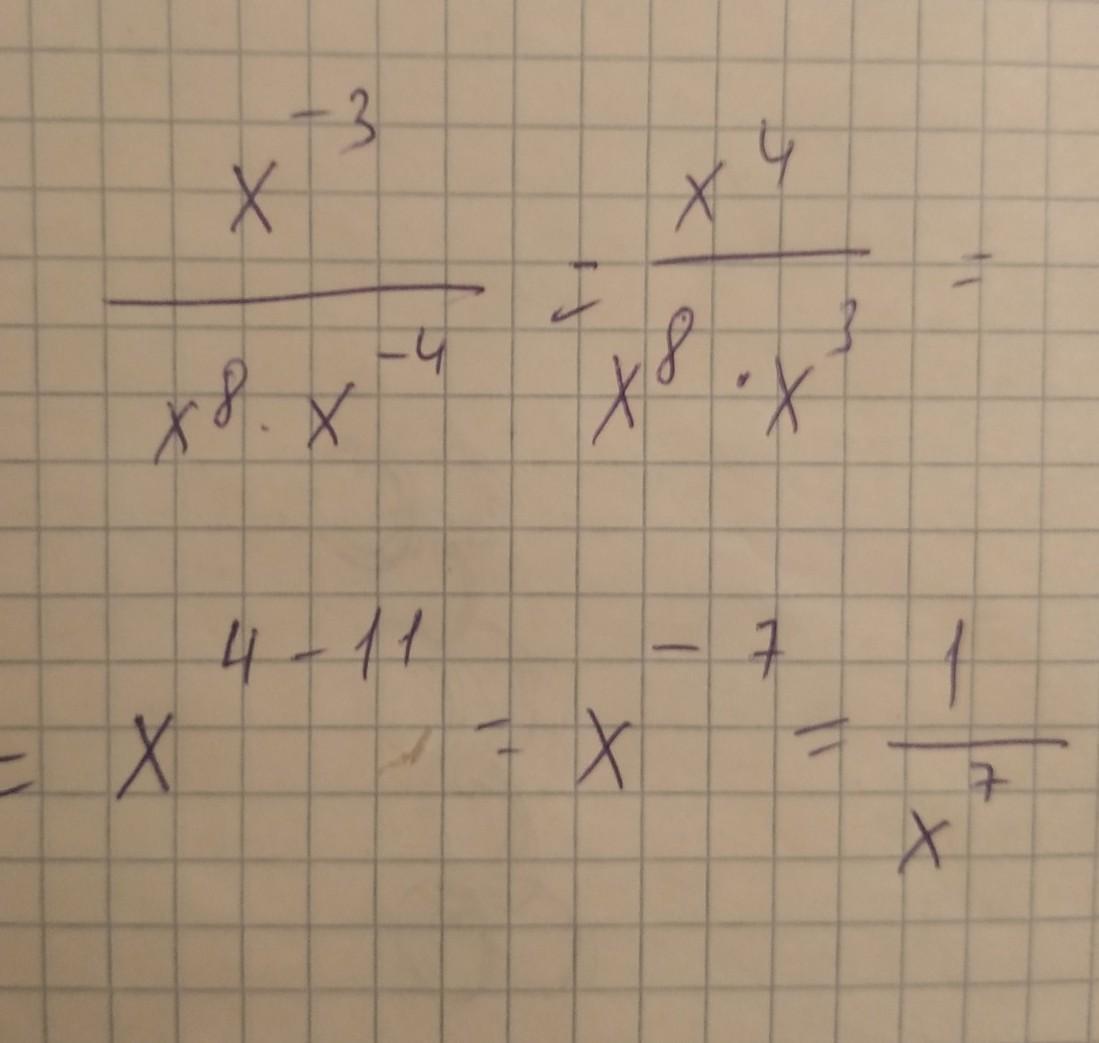 x⁻³/(x⁸ · x⁻⁴) = x⁴/(x⁸ · x³) =
= x⁴⁻¹¹ = x⁻⁷ = 1/x⁷